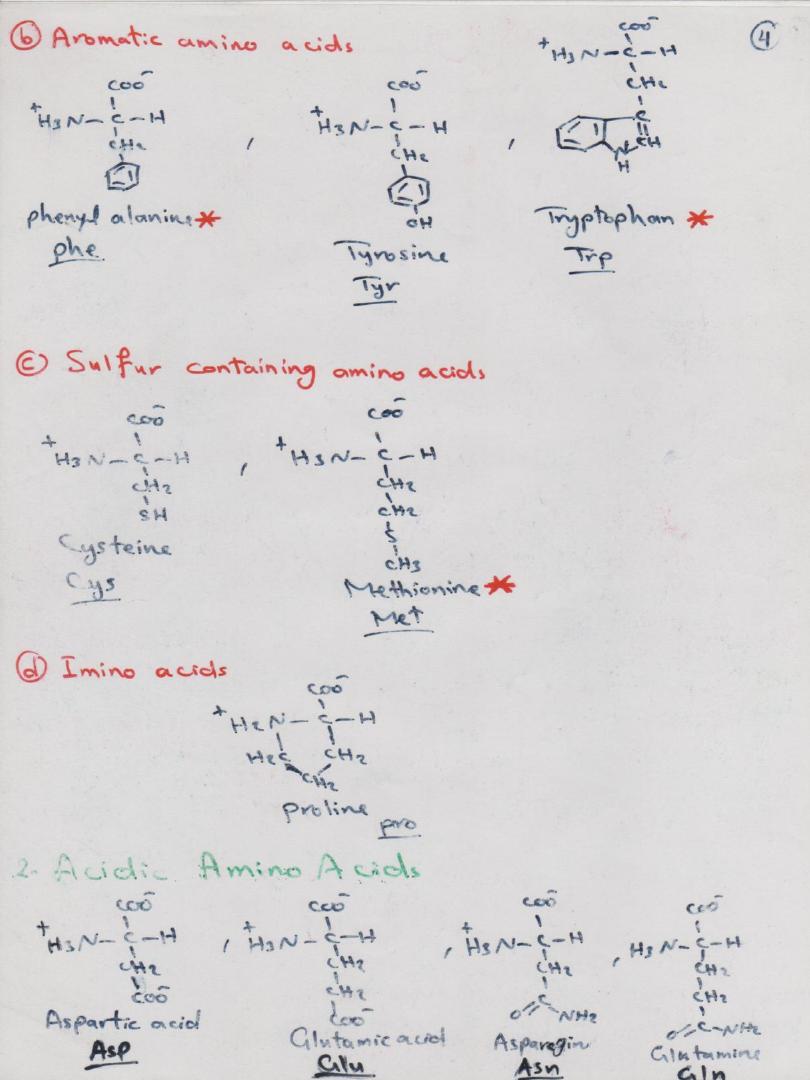 ⓑ Aromatic amino acids
④
COO⁻
⁺H3N-C-H
CH2
phenyl alanine*
phe
,
COO⁻
⁺H3N-C-H
CH2
OH
Tyrosine
Tyr
,
COO⁻
⁺H3N-C-H
CH2
C
CH
N
H
Tryptophan *
Trp
ⓒ Sulfur containing amino acids
COO⁻
⁺H3N-C-H
CH2
SH
Cysteine
Cys
,
COO⁻
⁺H3N-C-H
CH2
CH2
S
CH3
Methionine*
Met
ⓓ Imino acids
COO⁻
⁺H2N-C-H
H2C CH2
CH2
proline
pro
2- Acidic Amino Acids
COO⁻
⁺H3N-C-H
CH2
COO⁻
Aspartic acid
Asp
,
COO⁻
⁺H3N-C-H
CH2
CH2
COO⁻
Glutamic acid
Glu
,
COO⁻
⁺H3N-C-H
CH2
C
O NH2
Asparagin
Asn
,
COO⁻
H3N-C-H
CH2
CH2
O C-NH2
Glutamine
Gln